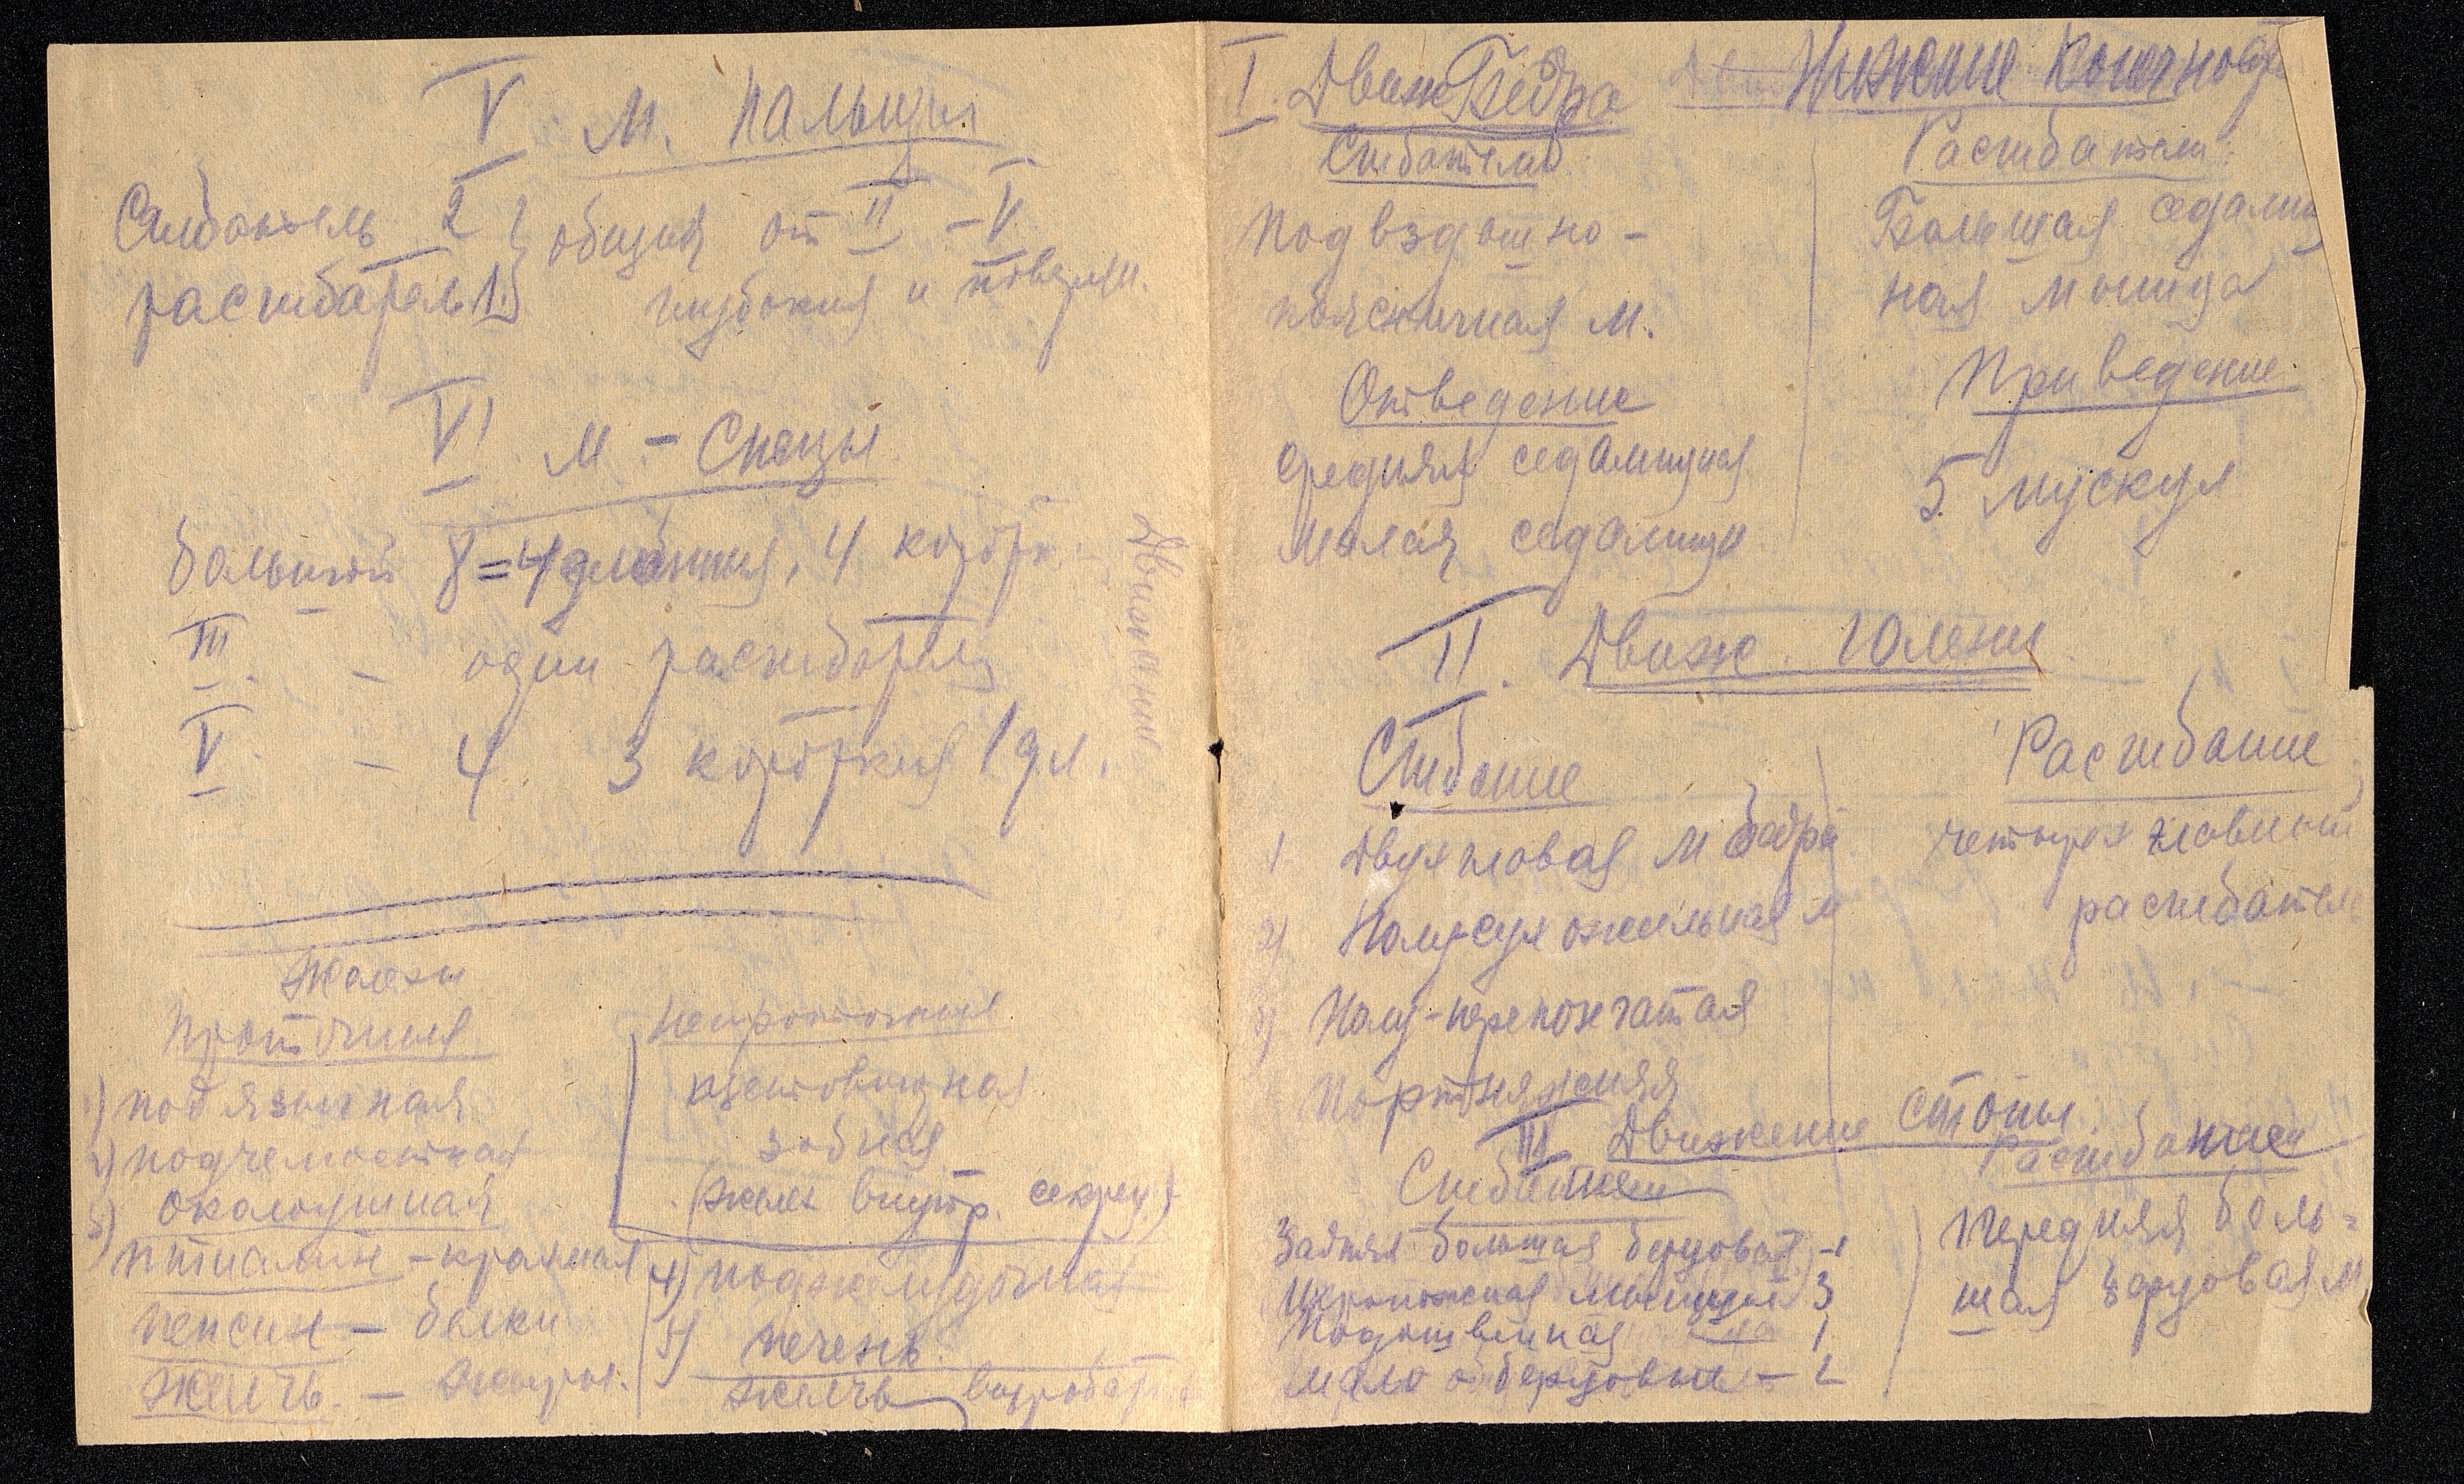 V М. Пальцы
Сгибатель 2 } общия от II – V
расгибатель 1. } глубокия и поверхн.
VI М – Спецы
большой 8 = 4 длинныя, 4 коротк.
III. – один расгибатель
V. – 4. 3 короткия 1 дл.
Движение
Железы
Проточныя
1) подязычная
2) подчелюстная
3) околоушная
птиалин – крахмал
пепсин – белки
Желчь. – жиры.
непроточныя
щитовидная
зобная
(желез внутр. секрец.)
4) поджелудочная
5) печень.
желчь вырабат
I. Движ Бедра Нижние Конечности
Сгибатели
Подвздошно-
поясничная м.
Отведение
средняя седалищная
Малая седалищн
Расгибатели
Большая седалищ
ная мышца
Приведение
5 мускул
II. Движ. голени
Сгибание
1 Двухглавая м бедра
2) Полусухожильная м
3) Полу-перепончатая
Портняжная
Расгибание
четырех главный
расгибатель
III Движение стопы.
Сгибание
Задняя большая берцовая – 1
Икроножная мышцы 3
Подошвенная 1
мало берцовые – 2
Расгибание
Передняя боль-
шая берцовая м